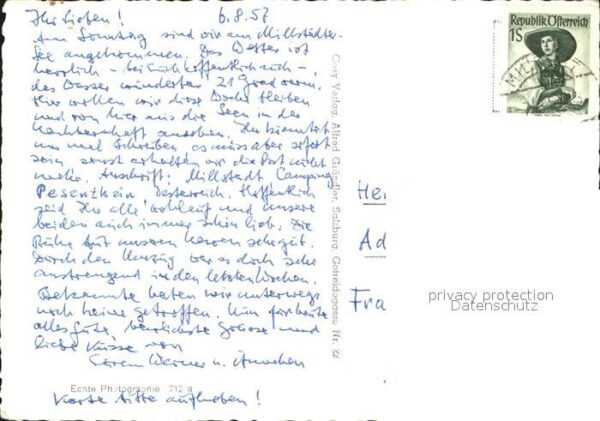 Ihr Lieben! 6.8.57
Am Sonntag sind wir am Millstädter-
See angekommen. Das Wetter ist
herrlich – bei Euch hoffentlich auch –,
das Wasser wunderbar 21 Grad warm.
Hier wollen wir diese Woche bleiben
und von hier aus die Seen in der
Nachbarschaft ansehen. Ihr könntet
uns mal schreiben es müss aber sofort
sein sonst erhalten wir die Post nicht
mehr. Anschrift: Millstadt Camping
Pesenthein, Österreich. Hoffentlich
seid Ihr alle wohlauf und unsere
beiden auch immer schön lieb. Die
Ruhe tut unseren Nerven sehr gut.
Durch den Umzug war es doch sehr
anstrengend in den letzten Wochen.
Bekannte haben wir unterwegs
noch keine getroffen. Nun für heute
alles Gute, herzlichste Grüsse und
liebe Küsse von
Euren Werner u. Annchen
Echte Photographie 712 a
Karte bitte aufheben!
Cosy Verlag, Alfred Gründler, Salzburg, Getreidegasse Nr. 22
Republik Österreich
1S
Her
Ad
Fra
privacy protection
Datenschutz